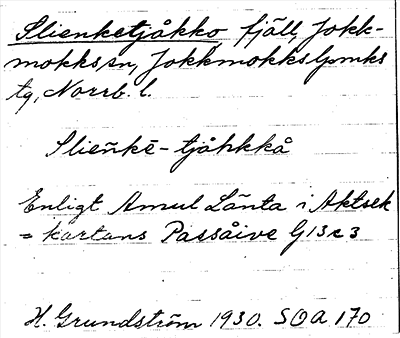 Slienketjåkko fjäll, Jokk-
mokks sn, Jokkmokks lpmks
tg, Norrb. l.
Slieńkē-tjåhkkå
Enligt Amul Länta i Aktsek
= kartans Passåive G13c3
H. Grundström 1930. SOA 170